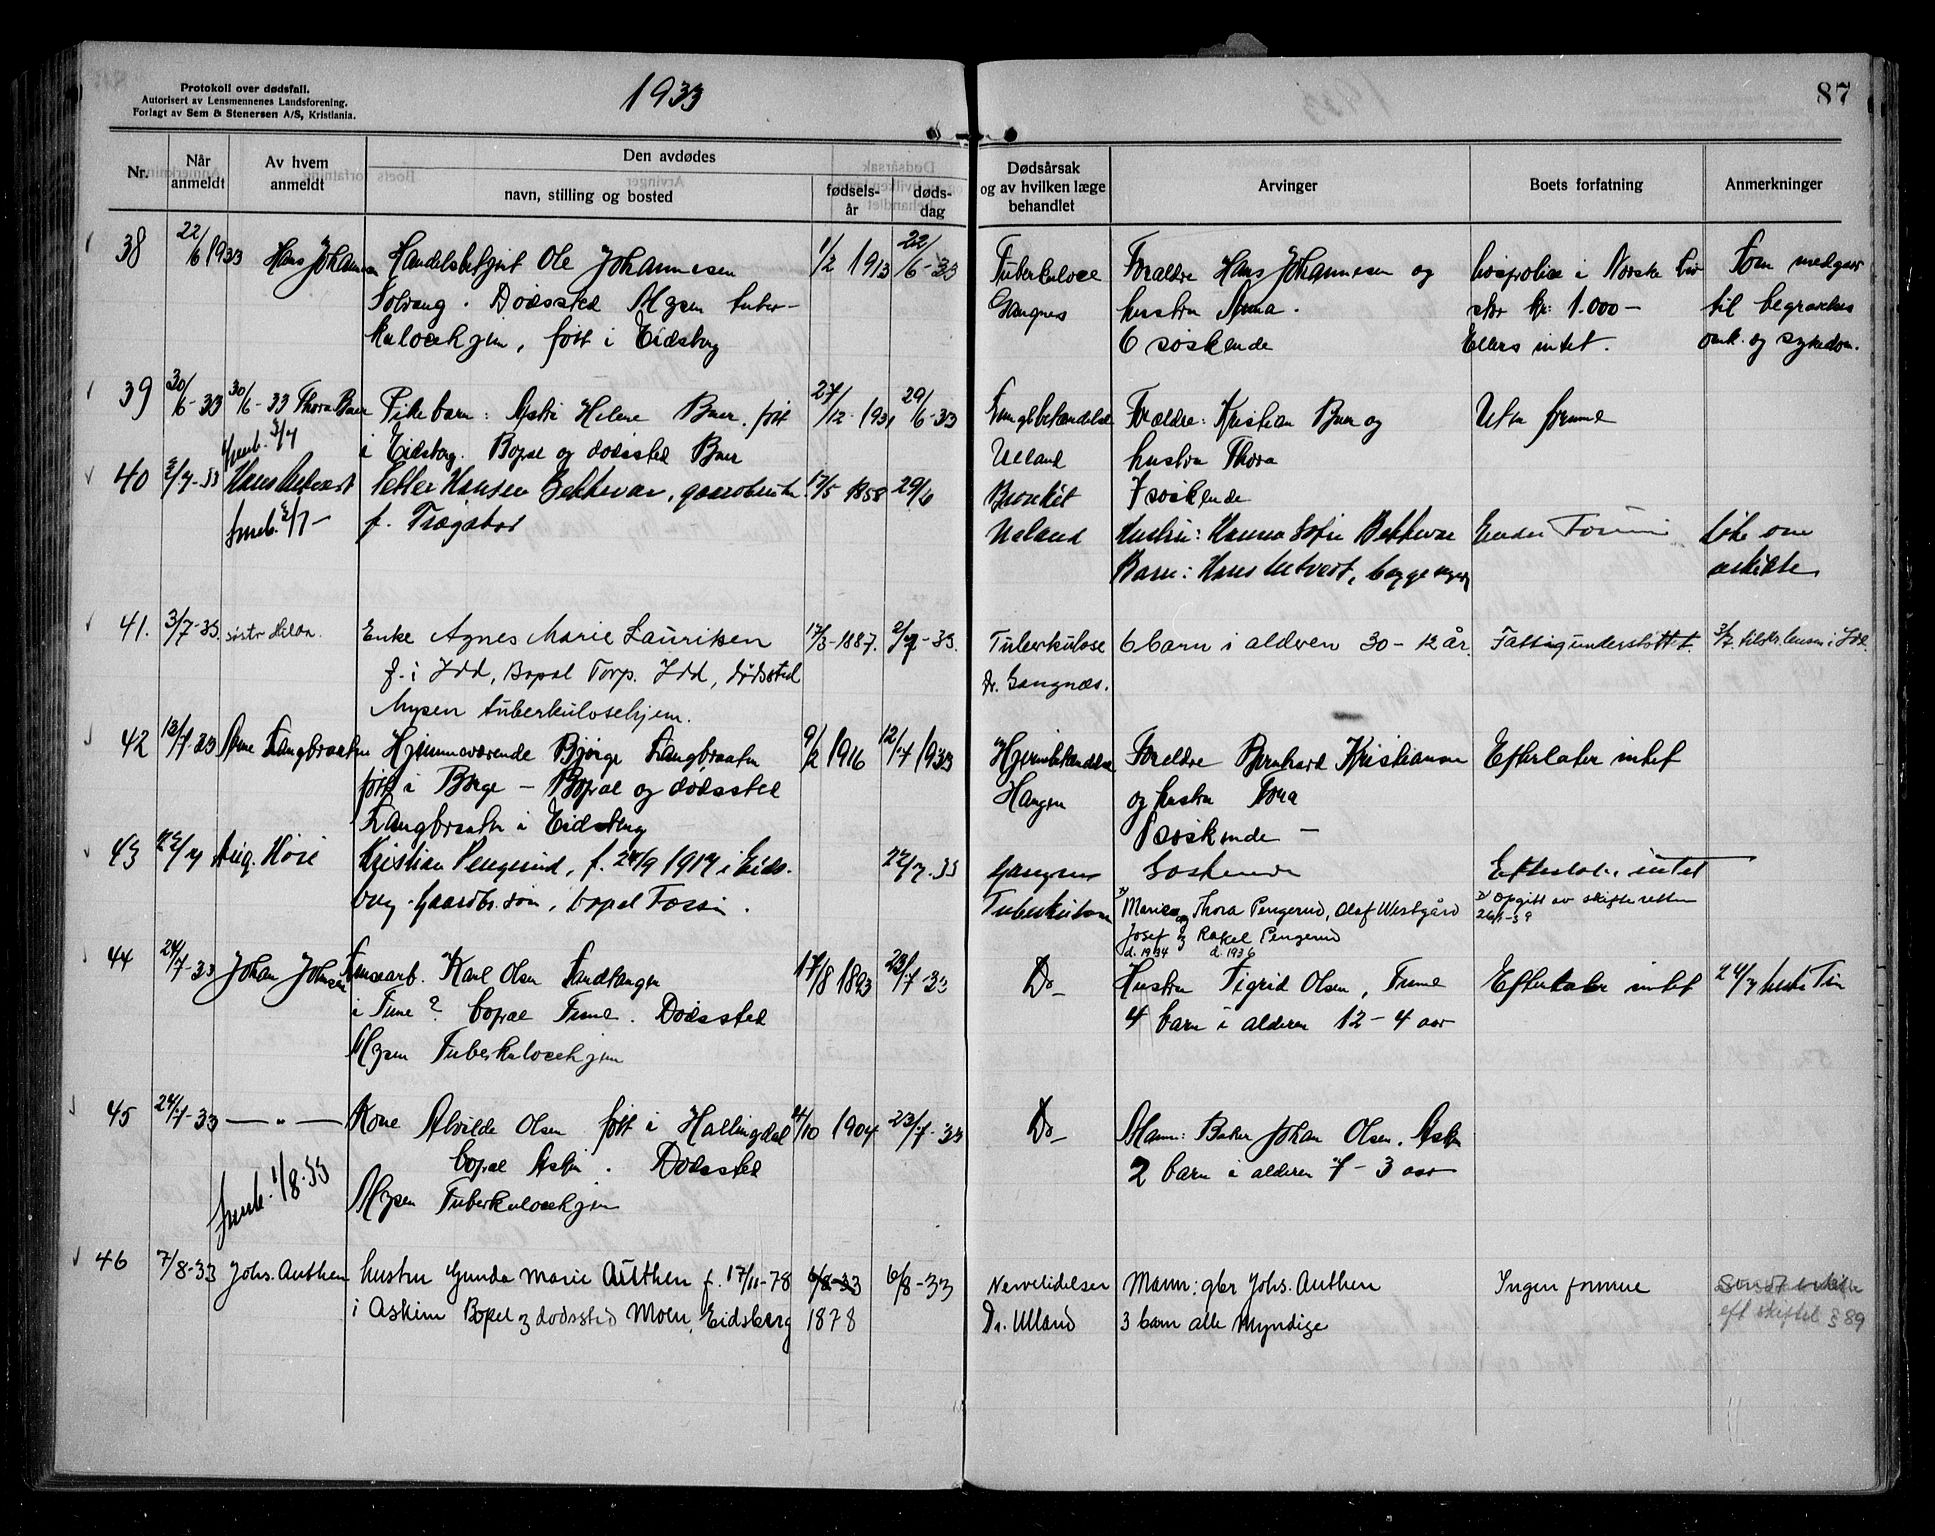 Protokoll over dødsfall.
Autorisert av Lensmennenes Landsforening.
Forlagt av Sem & Stenersen A/S, Kristiania.
1933
87
Nr.
Når anmeldt
Av hvem anmeldt
Den avdødes
navn, stilling og bosted
fødsels-år
døds-dag
Dødsårsak og av hvilken læge behandlet
Arvinger
Boets forfatning
Anmerkninger
38 22/6 1933 Hans Johannesen Handelsbetjent Ole Johannesen 1/2 1913 22/6-33 Tuberkulose Foraldre Hans Johannesen og livspolise i Norske Liv Som medgaar
Solvang. Dødssted Mysen tuber- Gangnes hustru Anna. stor kr: 1.000- til begravelses
kulosehjem, født i Eidsberg 6 søskende Ellers intet. omk. og sykedom.
39 30/6-33 30/6-33 Thora Buer Pikebarn: Astri Helene Buer. født 27/12-1931 29/6-33 Lungebetændelse Forældre: Kristian Buer og Uten formue
i Eidsberg. Bopæl og dødssted Buer Ulland hustru Thora
7 søskende
40 3/7-33 Petter Hansen Bekkevar, 17/5 1858 29/6 Bronkit Hustru: Hanna Sofie Bekkevar
f. Trøgstad Ulland Barn: Hans
41. 3/7-33. søster Hilda. Enke Agnes Marie Lauritsen 17/3-1887. 2/7-33. Tuberkulose 6 barn i alderen 30-12 år. Fattigunderstøttet.
f. i Idd, Bopæl Torp. Idd, dødssted Dr. Gangnæs.
Mysen tuberkulosehjem.
42 13/7-33 Langbraaten Hjemmeværende Bjørge Langbraaten 9/2 1916 12/7 1933 Hjernebetændelse Foreldre Bernhard Kristiansen Efterlater intet
født i Borge - Bopæl og dødssted Haugen og hustru Tora
Langbraaten i Eidsberg søskende -
43 22/7 Aug. Kristian Pengerud, f. 24/9 1917 i Eids- 22/7-33 Gangnes Søskende Efterlater intet
berg. Gaardbr. søn, bopæl Tuberkulose Marie og Thora Pengerud, Olaf Westgård Opgitt av skifteretten
Josef og Rakel Pengerud 26/
d. 1934 d. 1936
44 24/7-33 Johan Johnsen Karl Olsen Sandtangen 17/8 1893 23/7-33 Do- Hustru Sigrid Olsen, Tune Efterlater intet
i Tune? bopæl Tune. Dødssted 4 barn i alderen 12-4 aar
Mysen Tuberkulosehjem
45 24/7-33 —"— Kone Alvilde Olsen født i Hallingdal 4/10 1904 23/7-33 Do- Mann: Baker Johan Olsen, Askim
bopæl Askim. Dødssted 2 barn i alderen 7-3 aar
Mysen Tuberkulosehjem
1/8-33
46 7/8-33 Johs. Authen hustru Gunda Marie Authen f. 17/11-78 6/8-33 6/8-33 Nervelidelser Mann: gbr Johs. Authen Ingen formue
i Askim Bopel og dødssted Moen, Eidsberg 1878 Dr. Ulland 3 barn alle myndige eft skiftel § 89